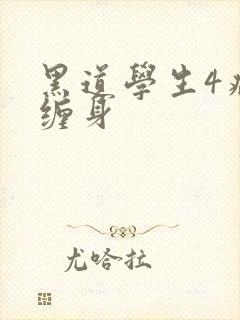 黑道學生4
缠身
尤哈拉